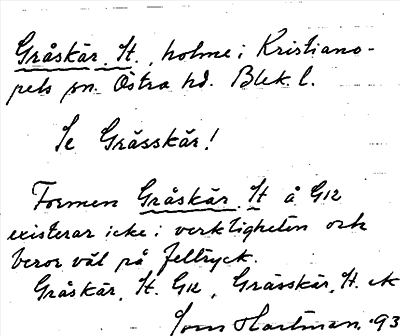 Gråskär, St., holme i Kristiano-
pels sn. Östra hd. Blek l.
Se Grässkär!
Formen Gråskär, St å G12
existerar icke i verkligheten och
beror väl på feltryck.
Gråskär, St. G12, Grässkär, St. ek
Hartman. '93